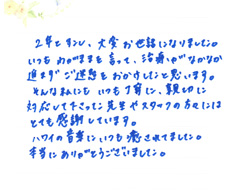 2年と少し、大変お世話になりました。
いつもわがままを言って、治療がなかなか
進まずご迷惑をおかけしたと思います。
そんな私にもいつも丁寧に、親切に
対応して下さった先生やスタッフの方々には
とても感謝しています。
ハワイの音楽にいつも癒されてました。
本当にありがとうございました。